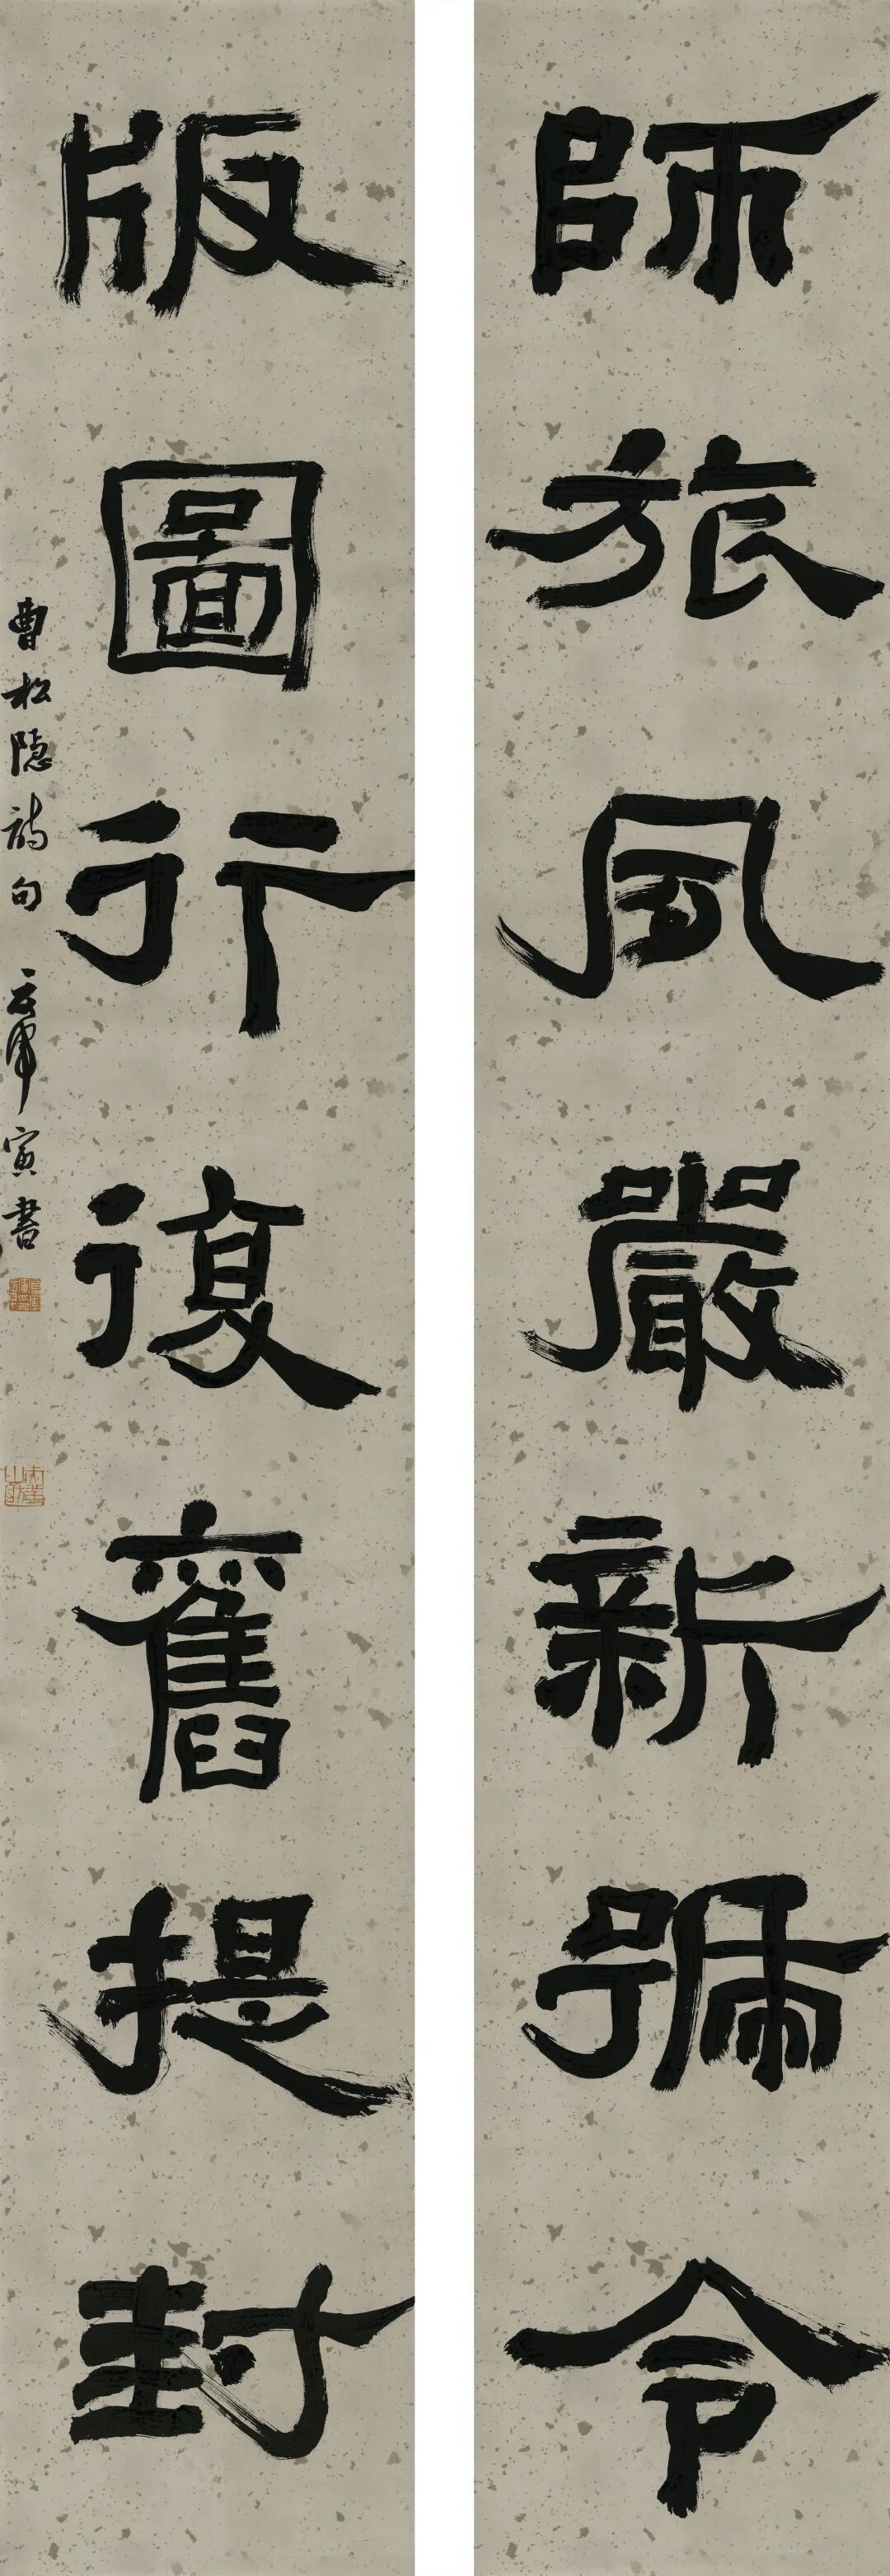 師旅風嚴新號令
版圖行復舊提封
曹松隱詩句
寅書